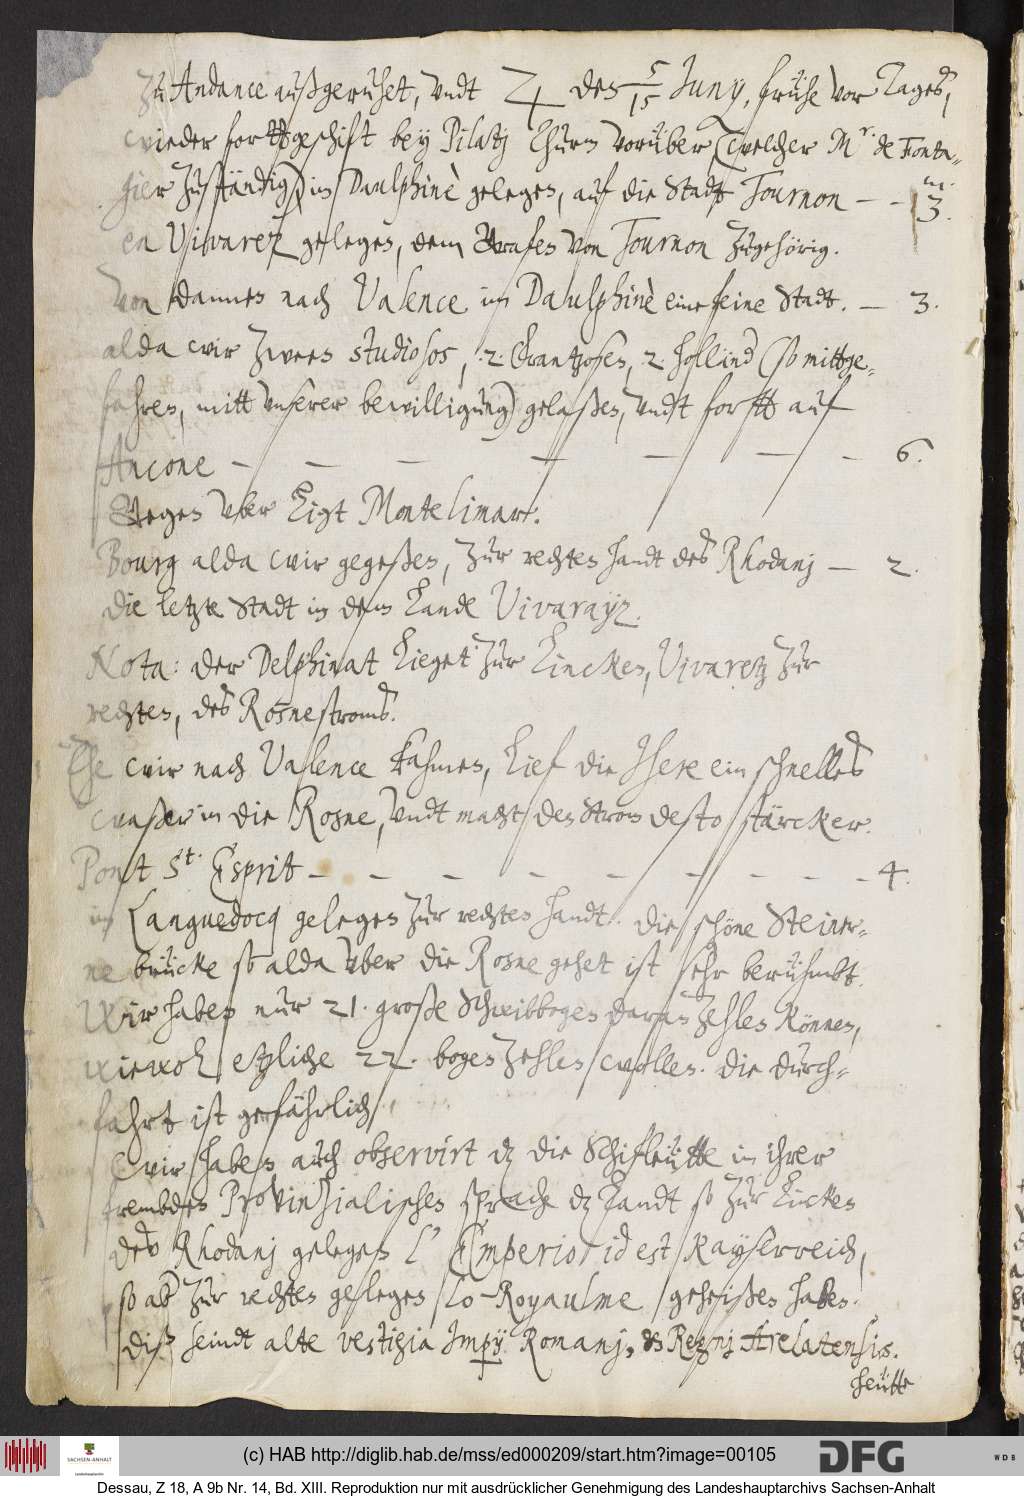 Zu Andance außgeruhet, undt ♃ den 5/15 Juny, frühe vor Tages,
wieder fortgeschift bey Pilatj Thurn vorüber (welcher Mr. de Fonta-
nier zuständig) in Daulphinè gelegen, auf die Stadt Tournon — — m. 3.
en Vivaretz gelegen, dem Grafen von Tournon zugehörig.
Von dannen nach Valence in Daulphinè eine feine Stadt. — 3.
alda wir zween studiosos, 2. Frantzosen, 2. Hollend (so mittge-
fahren, mitt unserer bewilligung) gelaßen, undt fortt auf
Ancone — — — — — — — 6.
Gegen uber ligt Montelimar.
Bourg alda wir gegeßen, zur rechten handt des Rhodanj — 2.
Die letzte Stadt in dem Lande Vivarayz.
Nota: der Delphinat lieget zur lincken, Vivaretz zur
rechten, des Rosnestroms.
Ehe wir nach Valence kahmen, lief die Isere ein schnelles
waßer in die Rosne, undt macht den Strom desto stärcker.
Pont St. Esprit — — — — — — — — — 4.
in Languedocq gelegen zur rechten handt. die schöne Steiner-
ne brücke so alda uber die Rosne gehet ist sehr beruhmbt.
Wir haben nur 21. große Schwibbogen daran zehlen können,
wiewol etzliche 22. bogen zehlen wollen. die durch-
fahrt ist gefährlich.
Wir haben auch observirt dz die Schifleütte in ihrer
frembden Provinsialischen sprach dz Landt so zur Lincken
des Rhodanj gelegen l' Emperi or id est Kayserreich,
so ab zur rechten gelegen lo-Royaulme geheißen haben.
diß seindt alte vestigia Impij Romanj, & Regnj Arelatensis.
heütte
(c) HAB http://diglib.hab.de/mss/ed000209/start.htm?image=00105
SACHSEN-ANHALT
DFG
WDB
Dessau, Z 18, A 9b Nr. 14, Bd. XIII. Reproduktion nur mit ausdrücklicher Genehmigung des Landeshauptarchivs Sachsen-Anhalt